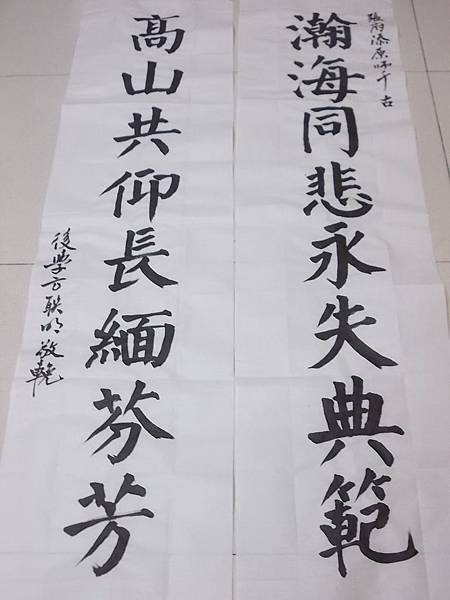 瀚海同悲永失典範
高山共仰長緬芬芳
師千古
後學方联明敬輓